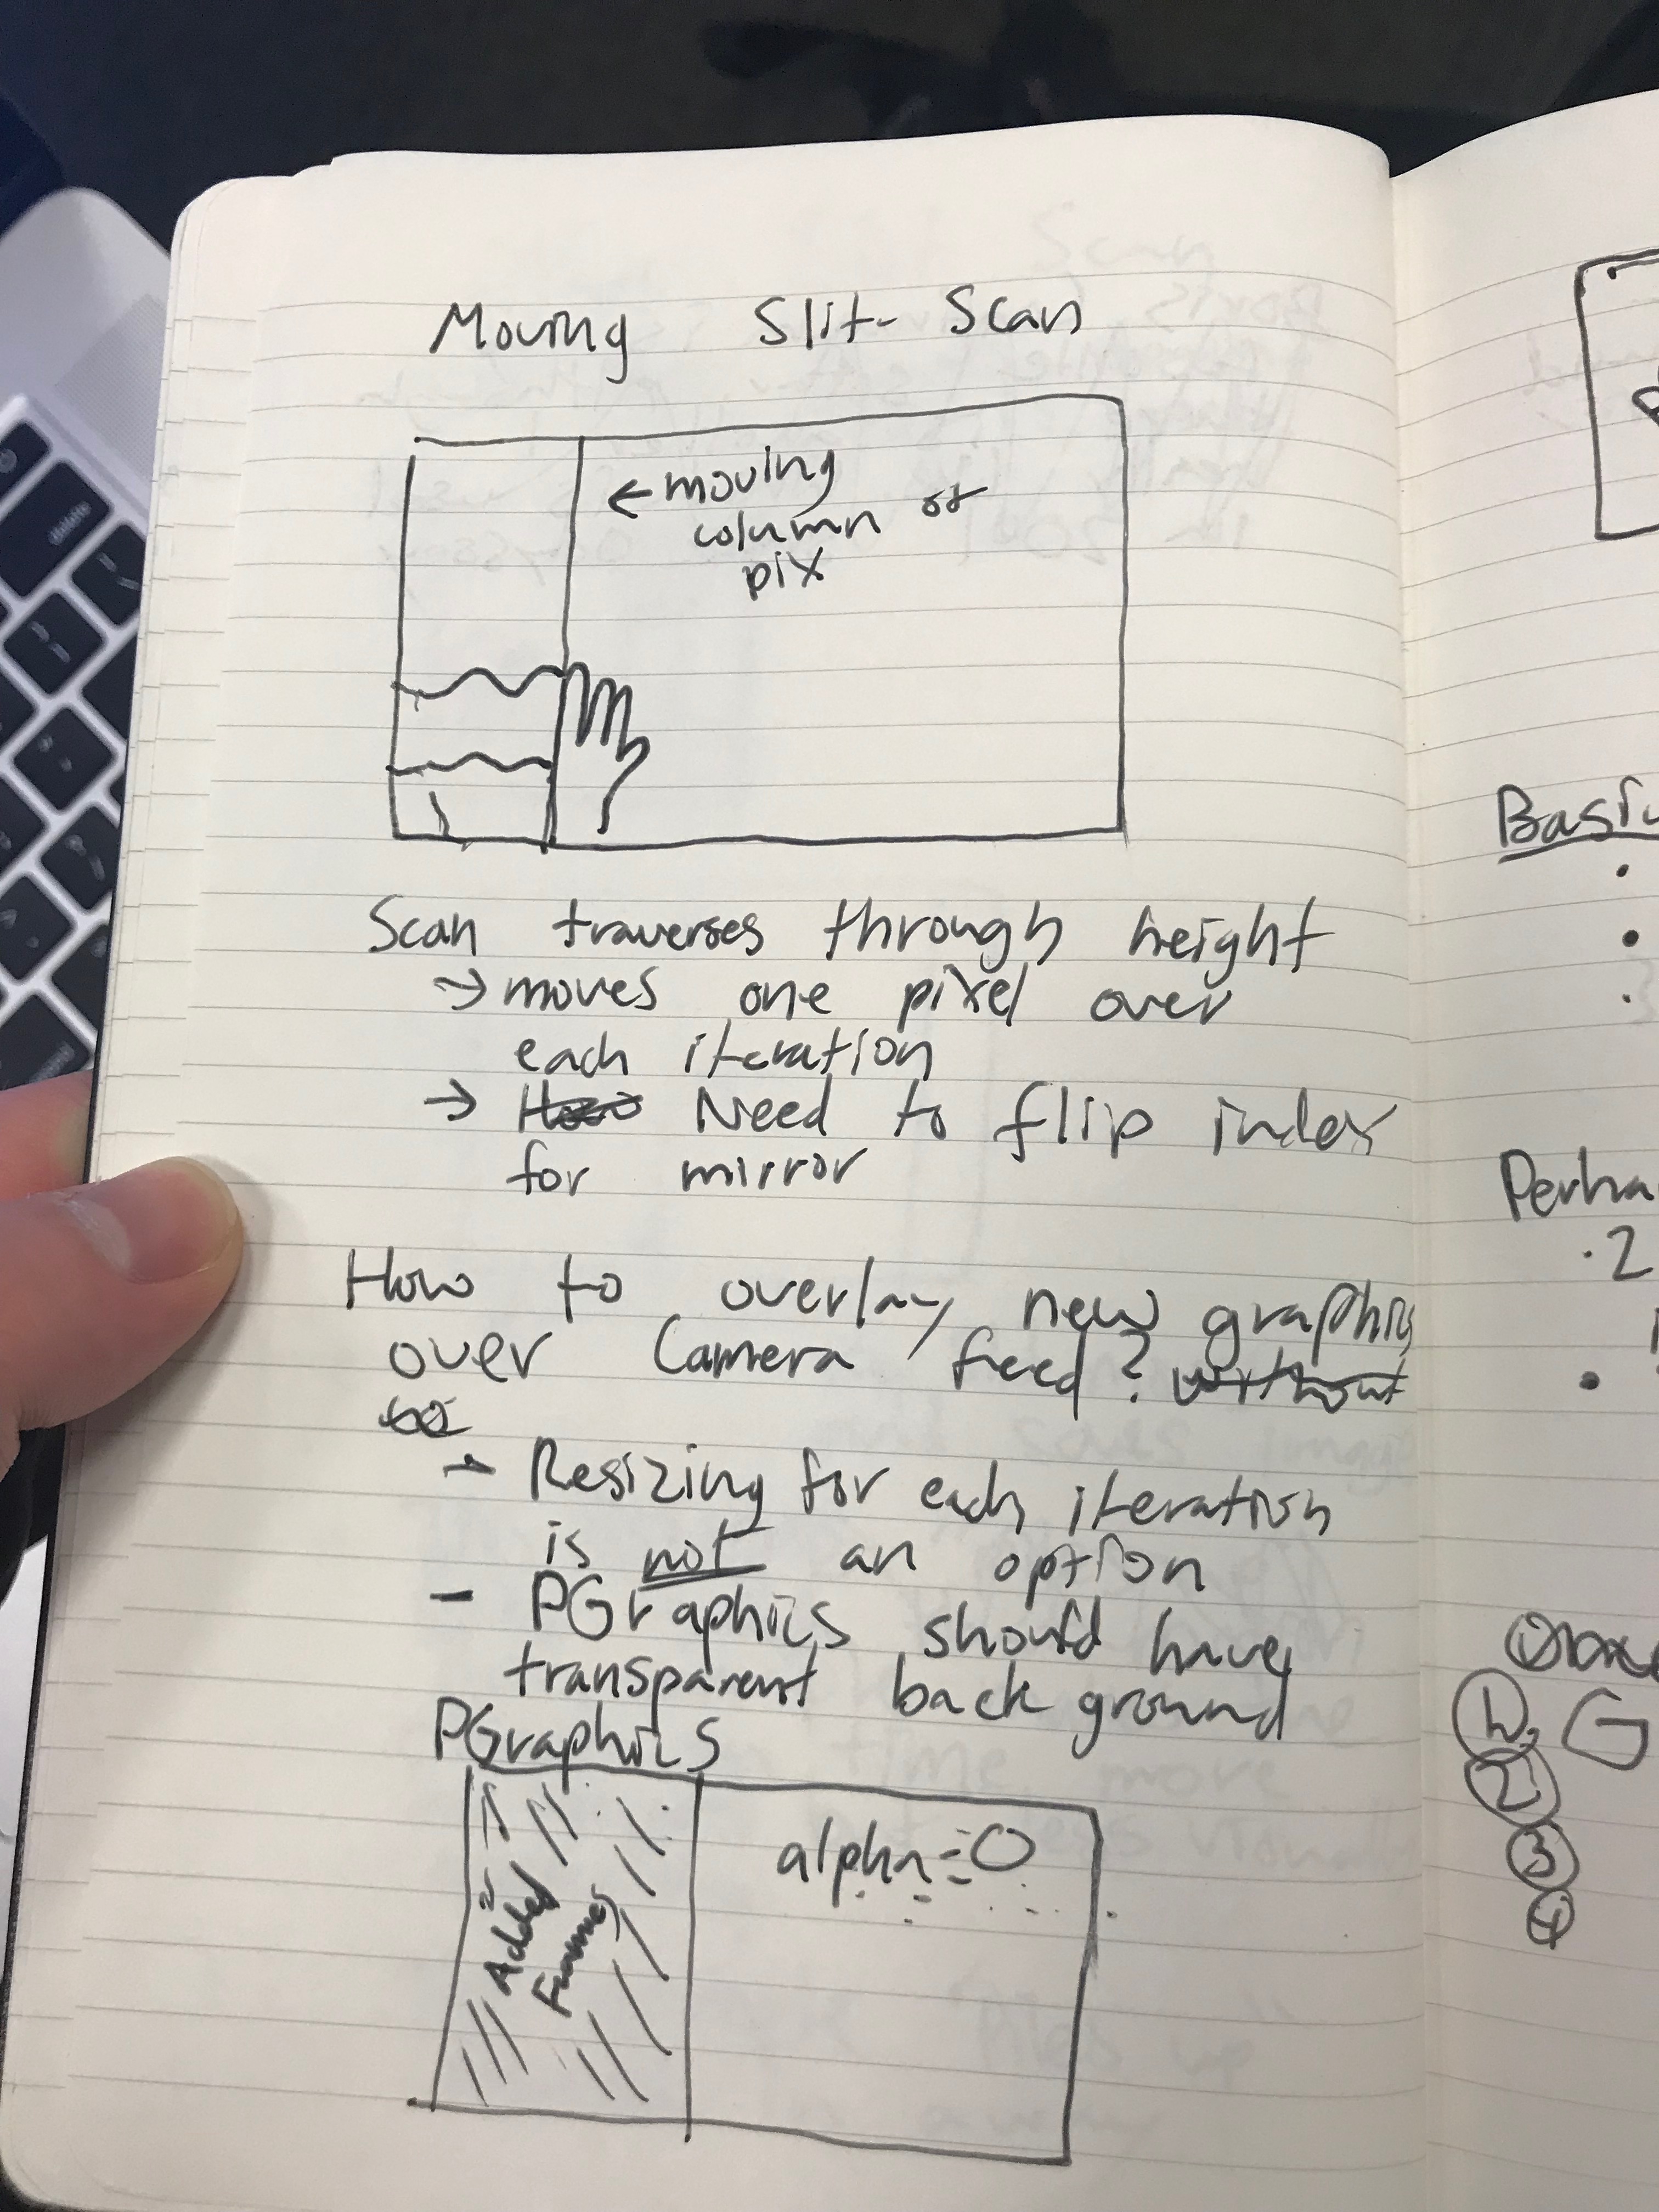 Moving Slit-Scan
← moving
column of
pix
Scan traverses through height
→ moves one pixel over
each iteration
→ Need to flip index
for mirror
How to overlay new graphics
over Camera feed? without
- Resizing for each iteration
is not an option
- PGraphics should have
transparent background
PGraphics
Added
Frames
alpha=0
Perha
• 2
1. G
2
3
4
delete